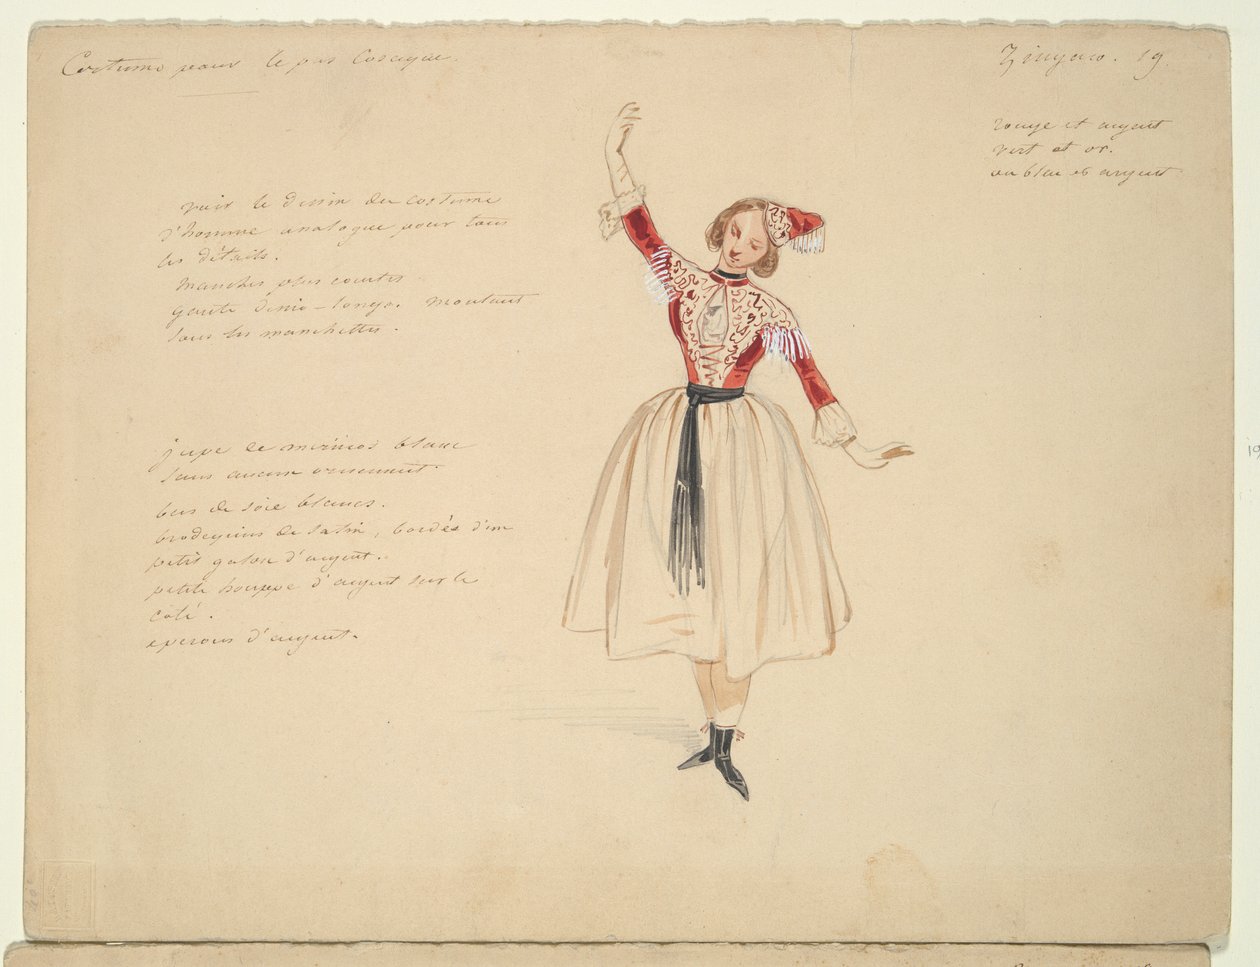 Costume pour le pas Cosaque.
Zingaro. 19.
rouge et argent
vert et or.
ou bleu et argent
voir le dessin du costume
d'homme analogue pour tous
les détails.
Manches plus courtes
gants demi-longs. montant
sous les manchettes.
jupe de mérinos blanc
sans aucun ornement.
bas de soie blancs.
brodequins de satin, bordés d'un
petit galon d'argent.
petite houppe d'argent sur le
côté.
eperons d'argent.
19